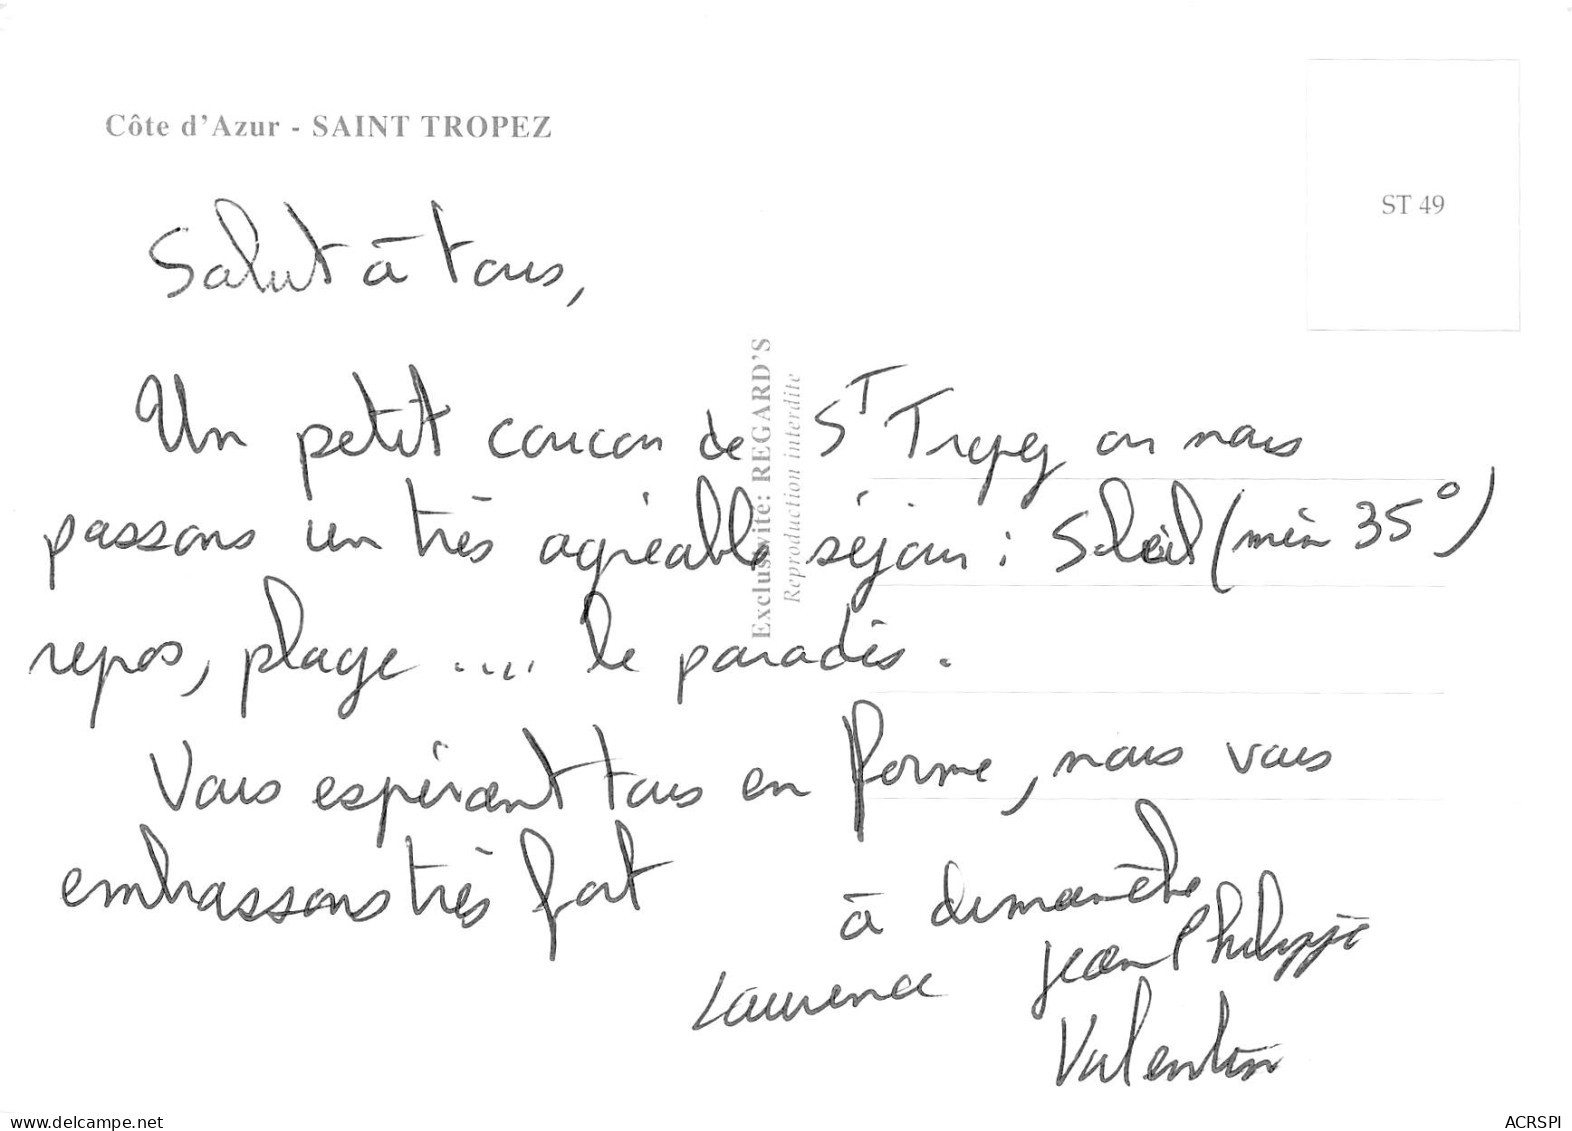 Côte d'Azur - SAINT TROPEZ
ST 49
Salut à tous,
Un petit coucou de S^T Tropez ou nous
passons un très agréable séjour : Soleil (min 35°)
repos, plage .... le paradis.
Vous espérant tous en forme, nous vous
embrassons très fort
à dimanche
Laurence Jean Philippe
Valentin
Exclusivité: REGARD'S
Reproduction interdite
www.delcampe.net
ACRSPI